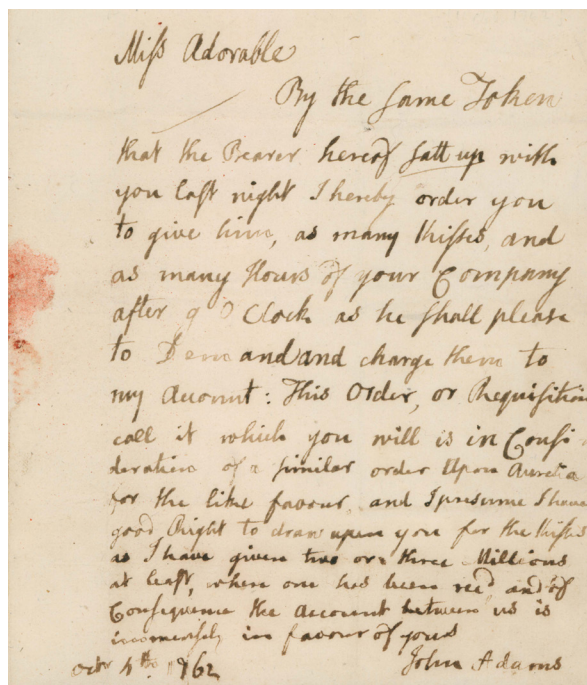 Miss Adorable
By the same Token
that the Bearer hereof satt up with
you last night I hereby order you
to give him, as many Kisses, and
as many Hours of your Company
after 9 O Clock as he shall please
to Demand and charge them to
my Account: This Order, or Requisition
call it which you will is in Consi
deration of a similar order Upon Aurelia
for the like favour, and I presume I have
good Right to draw upon you for the Kisses
as I have given two or three Millions
at least, when one has been recd, and of
Consequence the Account between us is
immensely in favour of yours
John Adams
Octr 4th. 1762